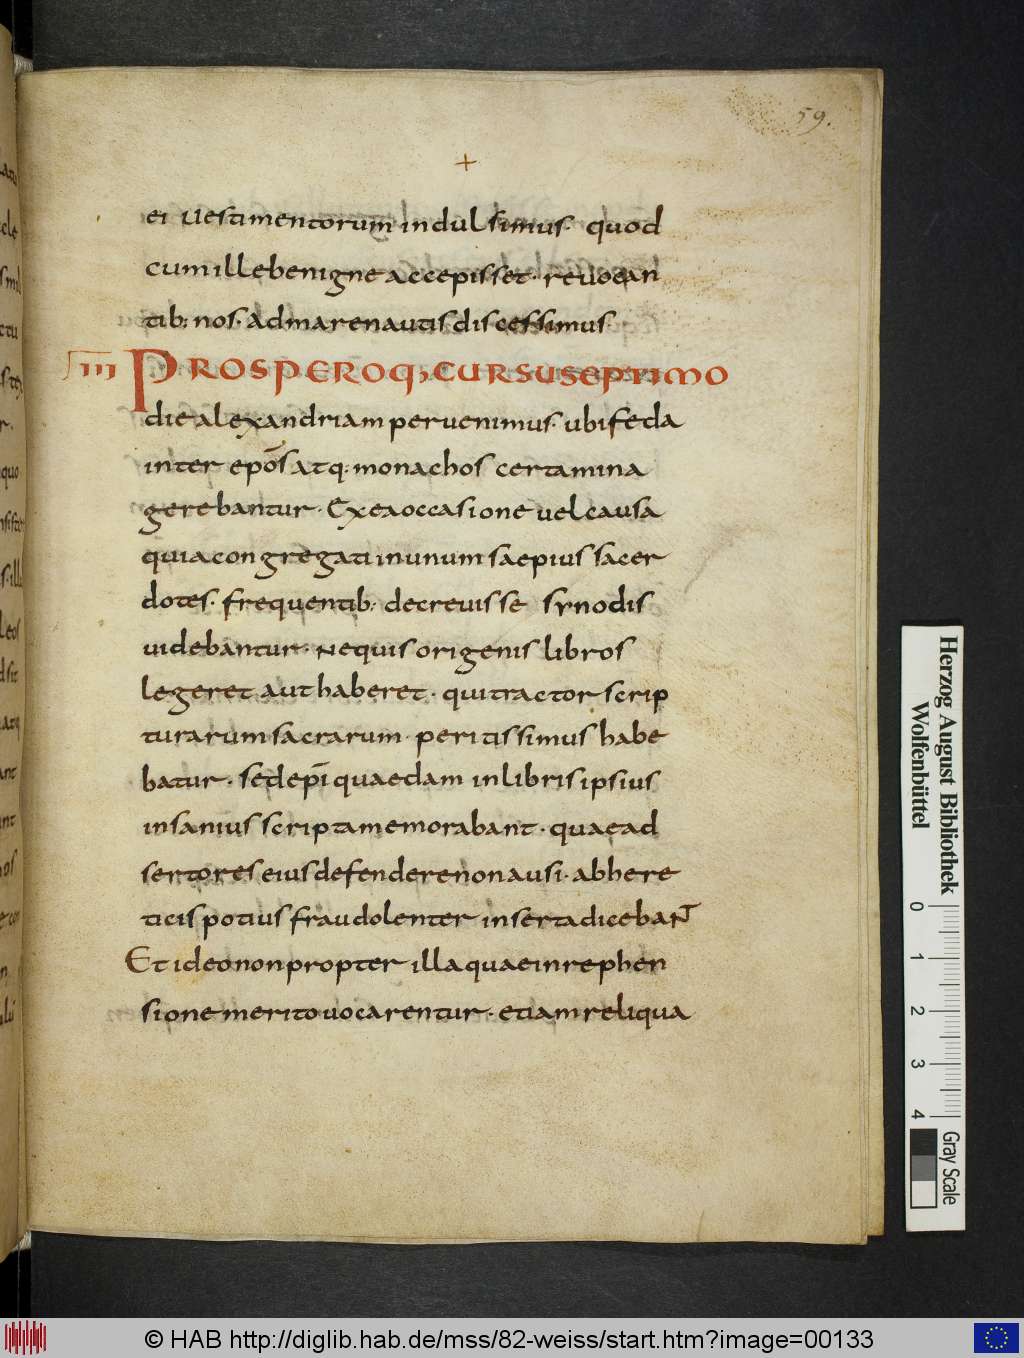 59.
+
ei vestimentorum indulsimus· quod
cum ille benigne accepisset· reuocan
tib: nos· ad mare nautis discessimus·
IIII PROSPEROQ; CURSU SEPTIMO
die alexandriam peruenimus· ubi feda
inter ep̄os atq: monachos certamina
gerebantur· Ex ea occasione uel causa
quia congregati in unum saepius sacer
dotes· frequentib: decreuisse synodis
uidebantur· Ne quis origenis libros
legeret aut haberet· qui tractor scrip
turarum sacrarum peritissimus habe
batur· sed ep̄i quaedam in libris ipsius
insanius scripta memorabant· quae ad
sertores eius defendere non ausi· ab here
ticis potius fraudolenter inserta dicebaNT
Et ideo non propter illa quae in rephen
sione merito uocarentur· etiam reliqua
Herzog August Bibliothek
Wolfenbüttel
0 1 2 3 4
Gray Scale
© HAB http://diglib.hab.de/mss/82-weiss/start.htm?image=00133